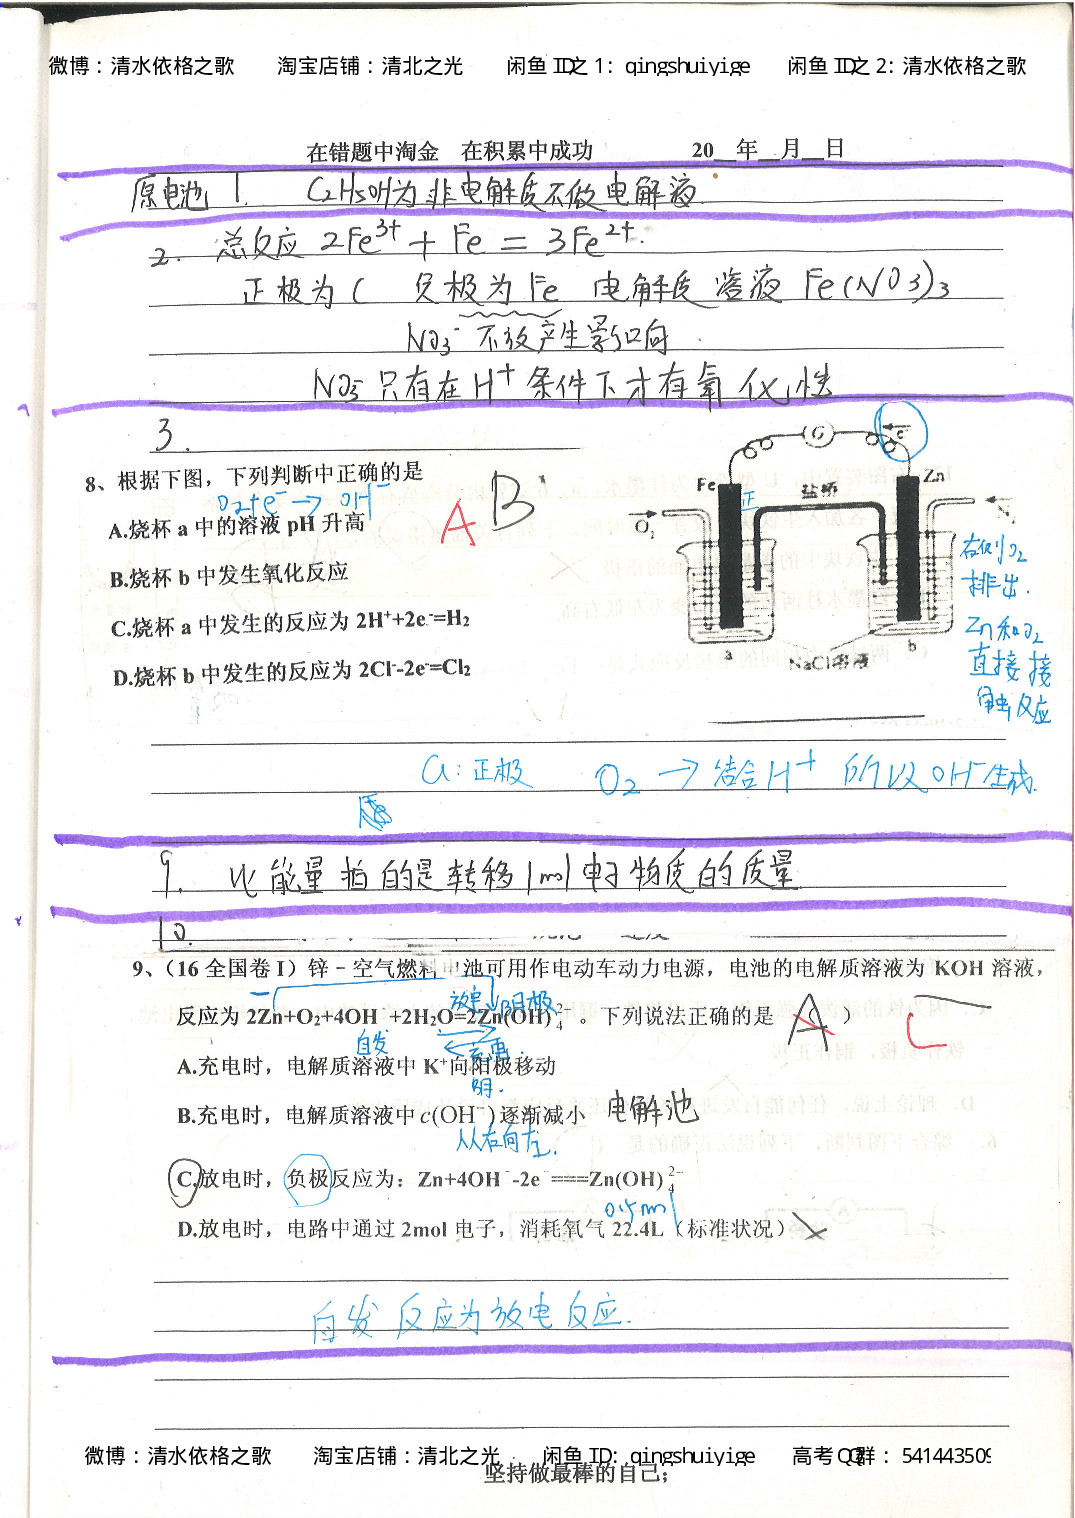 微博：清水依格之歌 淘宝店铺：清北之光 闲鱼 ID之 1: qingshuiyige 闲鱼 ID之 2: 清水依格之歌
在错题中淘金 在积累中成功 20__年__月__日
原电池 1. C2H5OH为非电解质不做电解液.
2. 总反应 2Fe³⁺ + Fe = 3Fe²⁺.
正极为C 负极为Fe 电解质溶液 Fe(NO3)3
NO3⁻ 不放产生影响
NO3⁻ 只有在H⁺条件下才有氧化性
3.
8、根据下图，下列判断中正确的是
O2+e⁻→OH⁻
A B
A.烧杯 a 中的溶液 pH 升高
B.烧杯 b 中发生氧化反应
C.烧杯 a 中发生的反应为 2H⁺+2e⁻=H₂
D.烧杯 b 中发生的反应为 2Cl⁻-2e⁻=Cl₂
G e
Fe 正 盐桥 Zn
O₂ N₂
a b
NaCl溶液
右侧O2
排出.
Zn和O2
直接接
触反应
a:正极 O2 → 结合H⁺ 所以OH⁻生成.
9. 比能量指的是转移1mol电子物质的质量
10.
9、（16 全国卷 I）锌－空气燃料电池可用作电动车动力电源，电池的电解质溶液为 KOH 溶液，
放电 阳极
反应为 2Zn+O₂+4OH⁻+2H₂O=2Zn(OH)₄²⁻ 。下列说法正确的是（ ） A C
自发 充电.
A.充电时，电解质溶液中 K⁺向阳极移动
阴.
B.充电时，电解质溶液中 c(OH⁻)逐渐减小 电解池
从右向左.
C.放电时，负极反应为：Zn+4OH⁻-2e⁻===Zn(OH)₄²⁻
0.5mol
D.放电时，电路中通过 2mol 电子，消耗氧气 22.4L（标准状况）
自发反应为放电反应.
微博：清水依格之歌 淘宝店铺：清北之光 闲鱼 ID: qingshuiyige 高考QQ群： 541443509
坚持做最棒的自己；